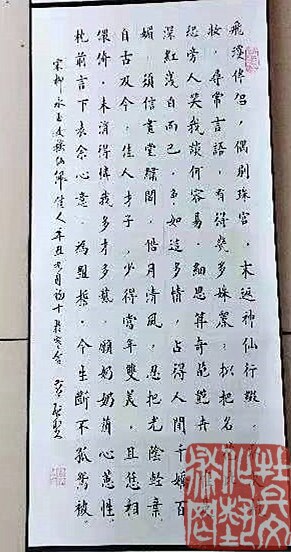 飛瓊伴侶，偶別珠宮，未返神仙行綴。
妝，尋常言語，有得幾多姝麗。擬把名花
恐旁人笑我，談何容易。細思算，奇葩艷卉
深紅淺白而已，爭如這多情，占得人間千嬌百
媚，須信畫堂繡閣，皓月清風，忍把光陰輕棄。
自古及今，佳人才子，少得當年雙美，且恁相
偎倚，未消得憐我多才多藝，願奶奶蘭心蕙性，
枕前言下，表余心意，為盟誓，今生斷不孤鴛被。
宋柳永玉女搖仙佩佳人 辛丑 月初十於